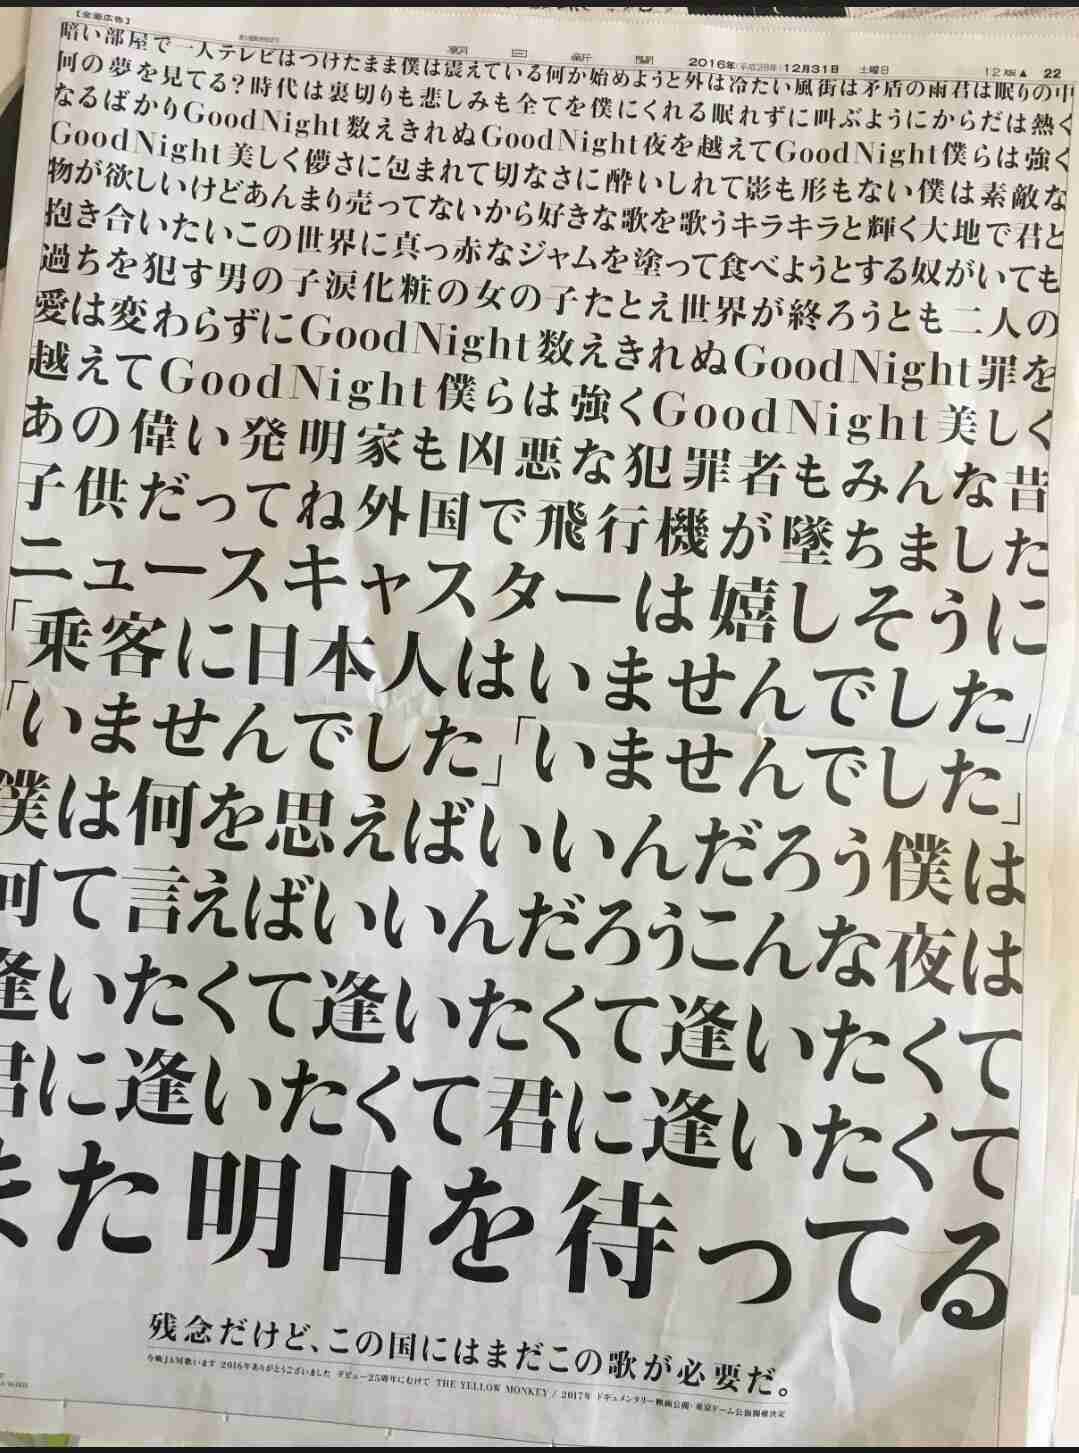 【全面広告】
朝日新聞 2016年(平成28年)12月31日 土曜日 12版▲ 22
暗い部屋で一人テレビはつけたまま僕は震えている何か始めようと外は冷たい風街は矛盾の雨君は眠りの中
何の夢を見てる?時代は裏切りも悲しみも全てを僕にくれる眠れずに叫ぶようにからだは熱く
なるばかりGoodNight数えきれぬGoodNight夜を越えてGoodNight僕らは強く
GoodNight美しく儚さに包まれて切なさに酔いしれて影も形もない僕は素敵な
物が欲しいけどあんまり売ってないから好きな歌を歌うキラキラと輝く大地で君と
抱き合いたいこの世界に真っ赤なジャムを塗って食べようとする奴がいても
過ちを犯す男の子涙化粧の女の子たとえ世界が終ろうとも二人の
愛は変わらずにGoodNight数えきれぬGoodNight罪を
越えてGoodNight僕らは強くGoodNight美しく
あの偉い発明家も凶悪な犯罪者もみんな昔
子供だってね外国で飛行機が墜ちました
ニュースキャスターは嬉しそうに
「乗客に日本人はいませんでした」
「いませんでした」「いませんでした」
僕は何を思えばいいんだろう僕は
何て言えばいいんだろうこんな夜は
逢いたくて逢いたくて逢いたくて
君に逢いたくて君に逢いたくて
また明日を待ってる
残念だけど、この国にはまだこの歌が必要だ。
今晩JAM歌います 2016年ありがとうございました デビュー25周年にむけて THE YELLOW MONKEY / 2017年 ドキュメンタリー映画公開・東京ドーム公演開催決定